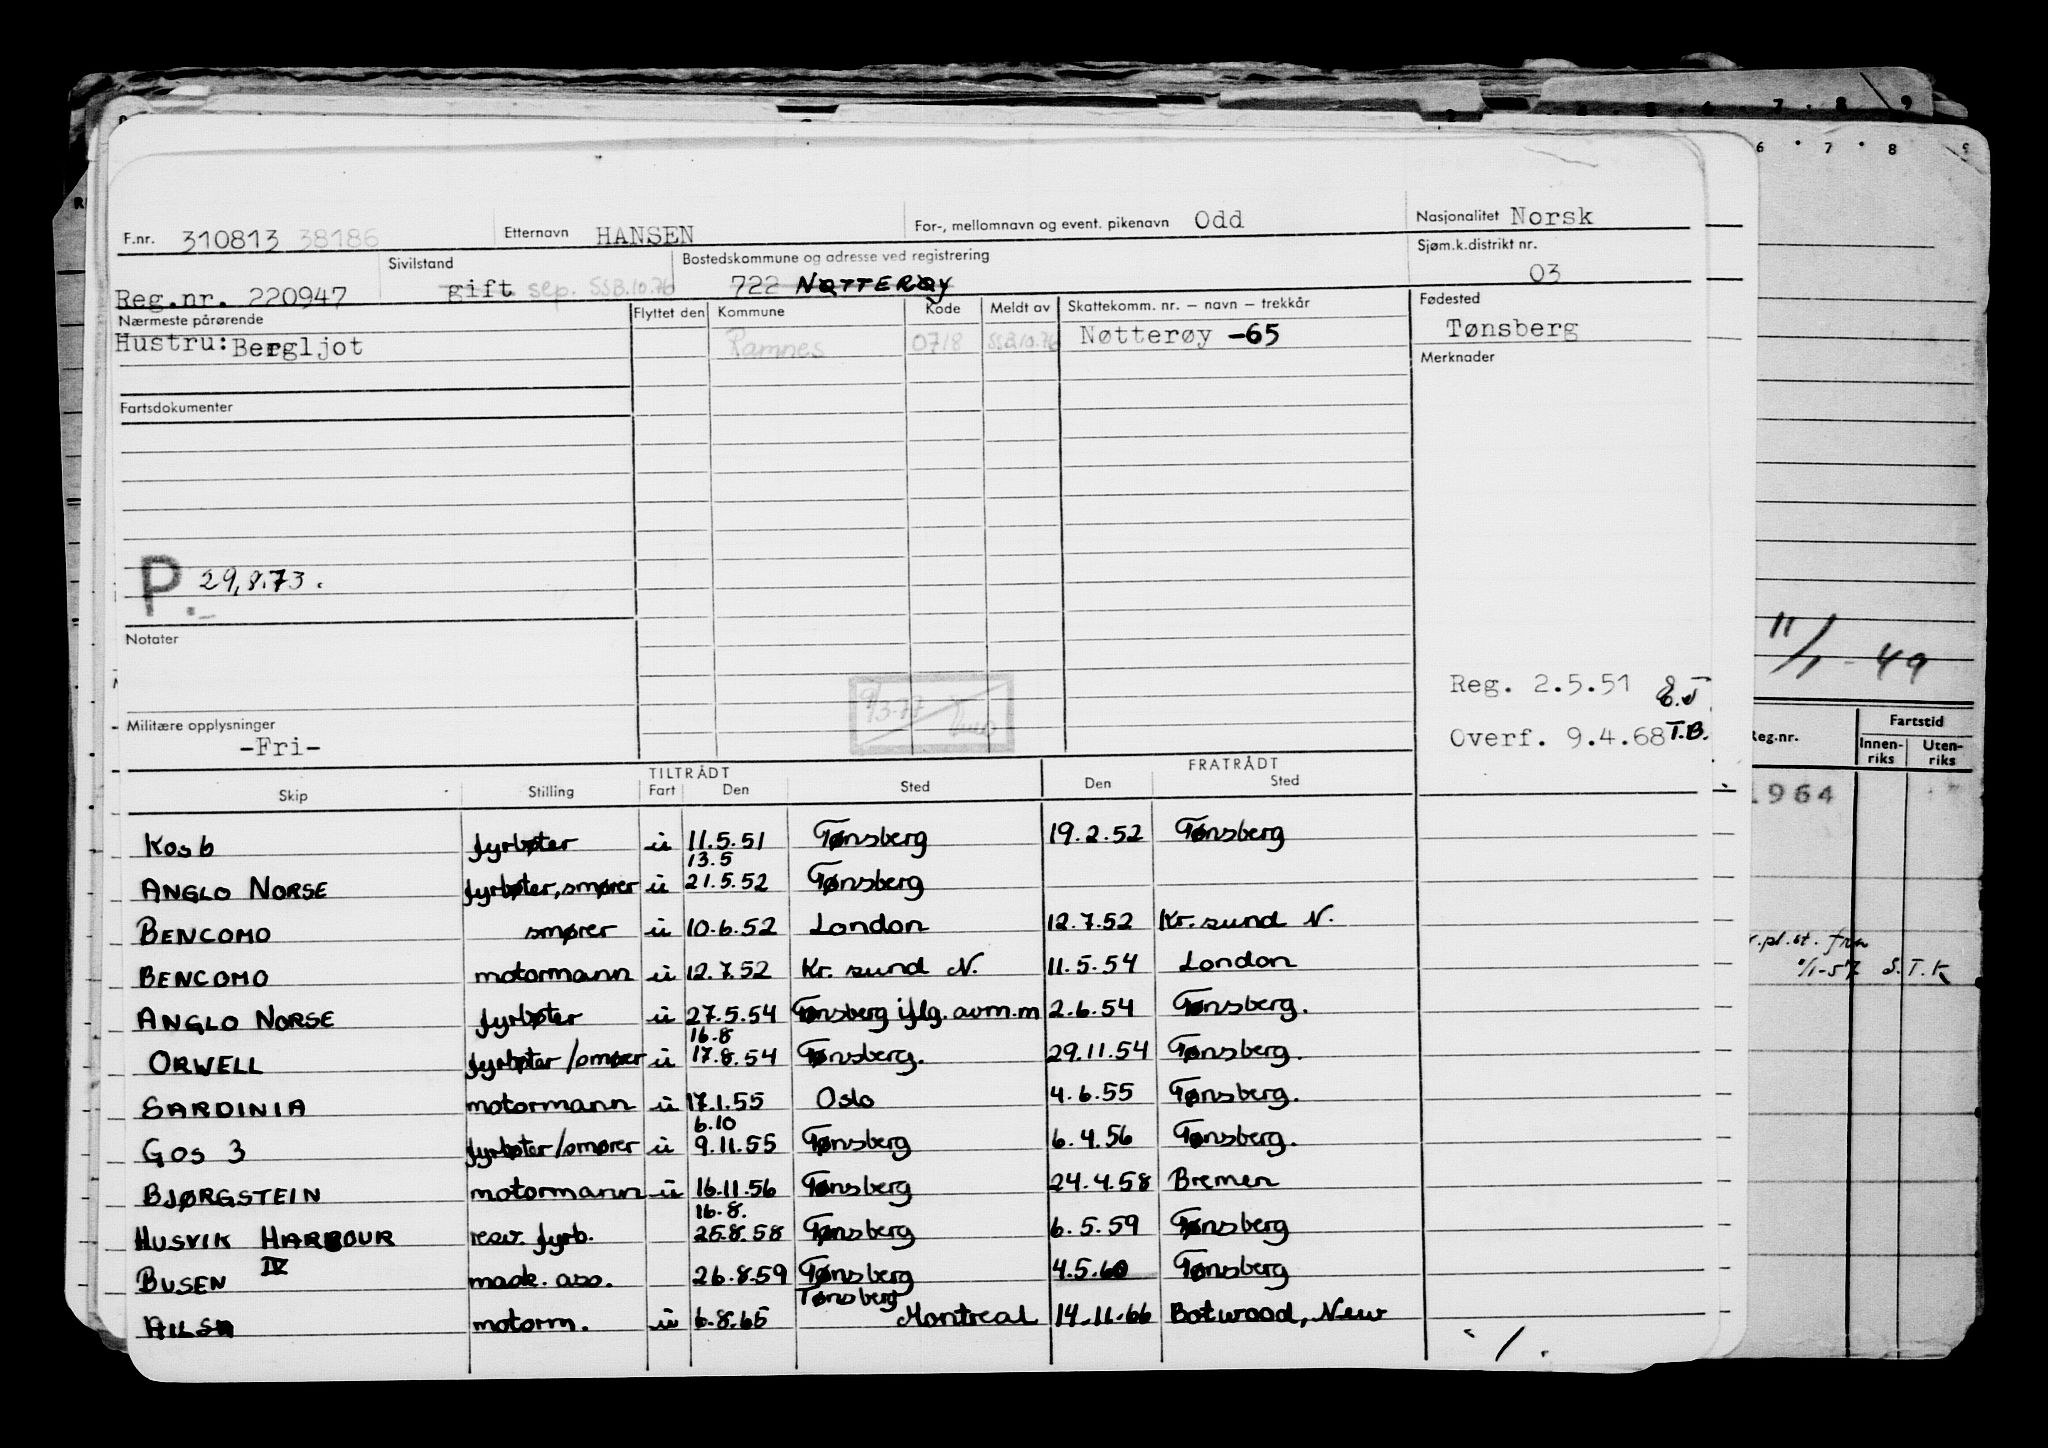 F.nr. 310813 38186 Etternavn HANSEN For-, mellomnavn og event. pikenavn Odd Nasjonalitet Norsk
Reg.nr. 220947 Sivilstand gift sep. SSB.10.76 Bostedskommune og adresse ved registrering 722 NØTTERØY Sjøm.k.distrikt nr. 03
Nærmeste pårørende Flyttet den Kommune Kode Meldt av Skattekomm. nr. – navn – trekkår Fødested
Hustru: Bergljot Ramnes 0718 SSB.10.76 Nøtterøy -65 Tønsberg
Merknader
Fartsdokumenter
P. 29.8.73.
Notater
Reg. 2.5.51
Militære opplysninger
-Fri- Overf. 9.4.68 T.B.
TILTRÅDT FRATRÅDT
Skip Stilling Fart Den Sted Den Sted
Kos 6 fyrbøter u 11.5.51 Tønsberg 19.2.52 Tønsberg
13.5
ANGLO NORSE fyrbøter, smører u 21.5.52 Tønsberg
BENCOMO smører u 10.6.52 London 12.7.52 Kr. sund N.
BENCOMO motormann u 12.7.52 Kr. sund N. 11.5.54 London
ANGLO NORSE fyrbøter u 27.5.54 Tønsberg iflg. avm.m 2.6.54 Tønsberg.
16.8
ORWELL fyrbøter/smører u 17.8.54 Tønsberg. 29.11.54 Tønsberg.
SARDINIA motormann u 17.1.55 Oslo 4.6.55 Tønsberg.
6.10
GOS 3 fyrbøter/smører u 9.11.55 Tønsberg 6.4.56 Tønsberg.
BJØRGSTEIN motormann u 16.11.56 Tønsberg 24.4.58 Bremen
16.8.
HUSVIK HARBOUR resv. fyrb. 25.8.58 Tønsberg 6.5.59 Tønsberg
BUSEN IV mask. ass. 26.8.59 Tønsberg 4.5.60 Tønsberg
Tønsberg
AILSA motorm. u 6.8.65 Montreal 14.11.66 Botwood, New
./.
6 7 8 9
11/1-49
Reg.nr. Fartstid
Innen-riks Uten-riks
1964
r.pl.st. fra
1/1-57 S.T.K